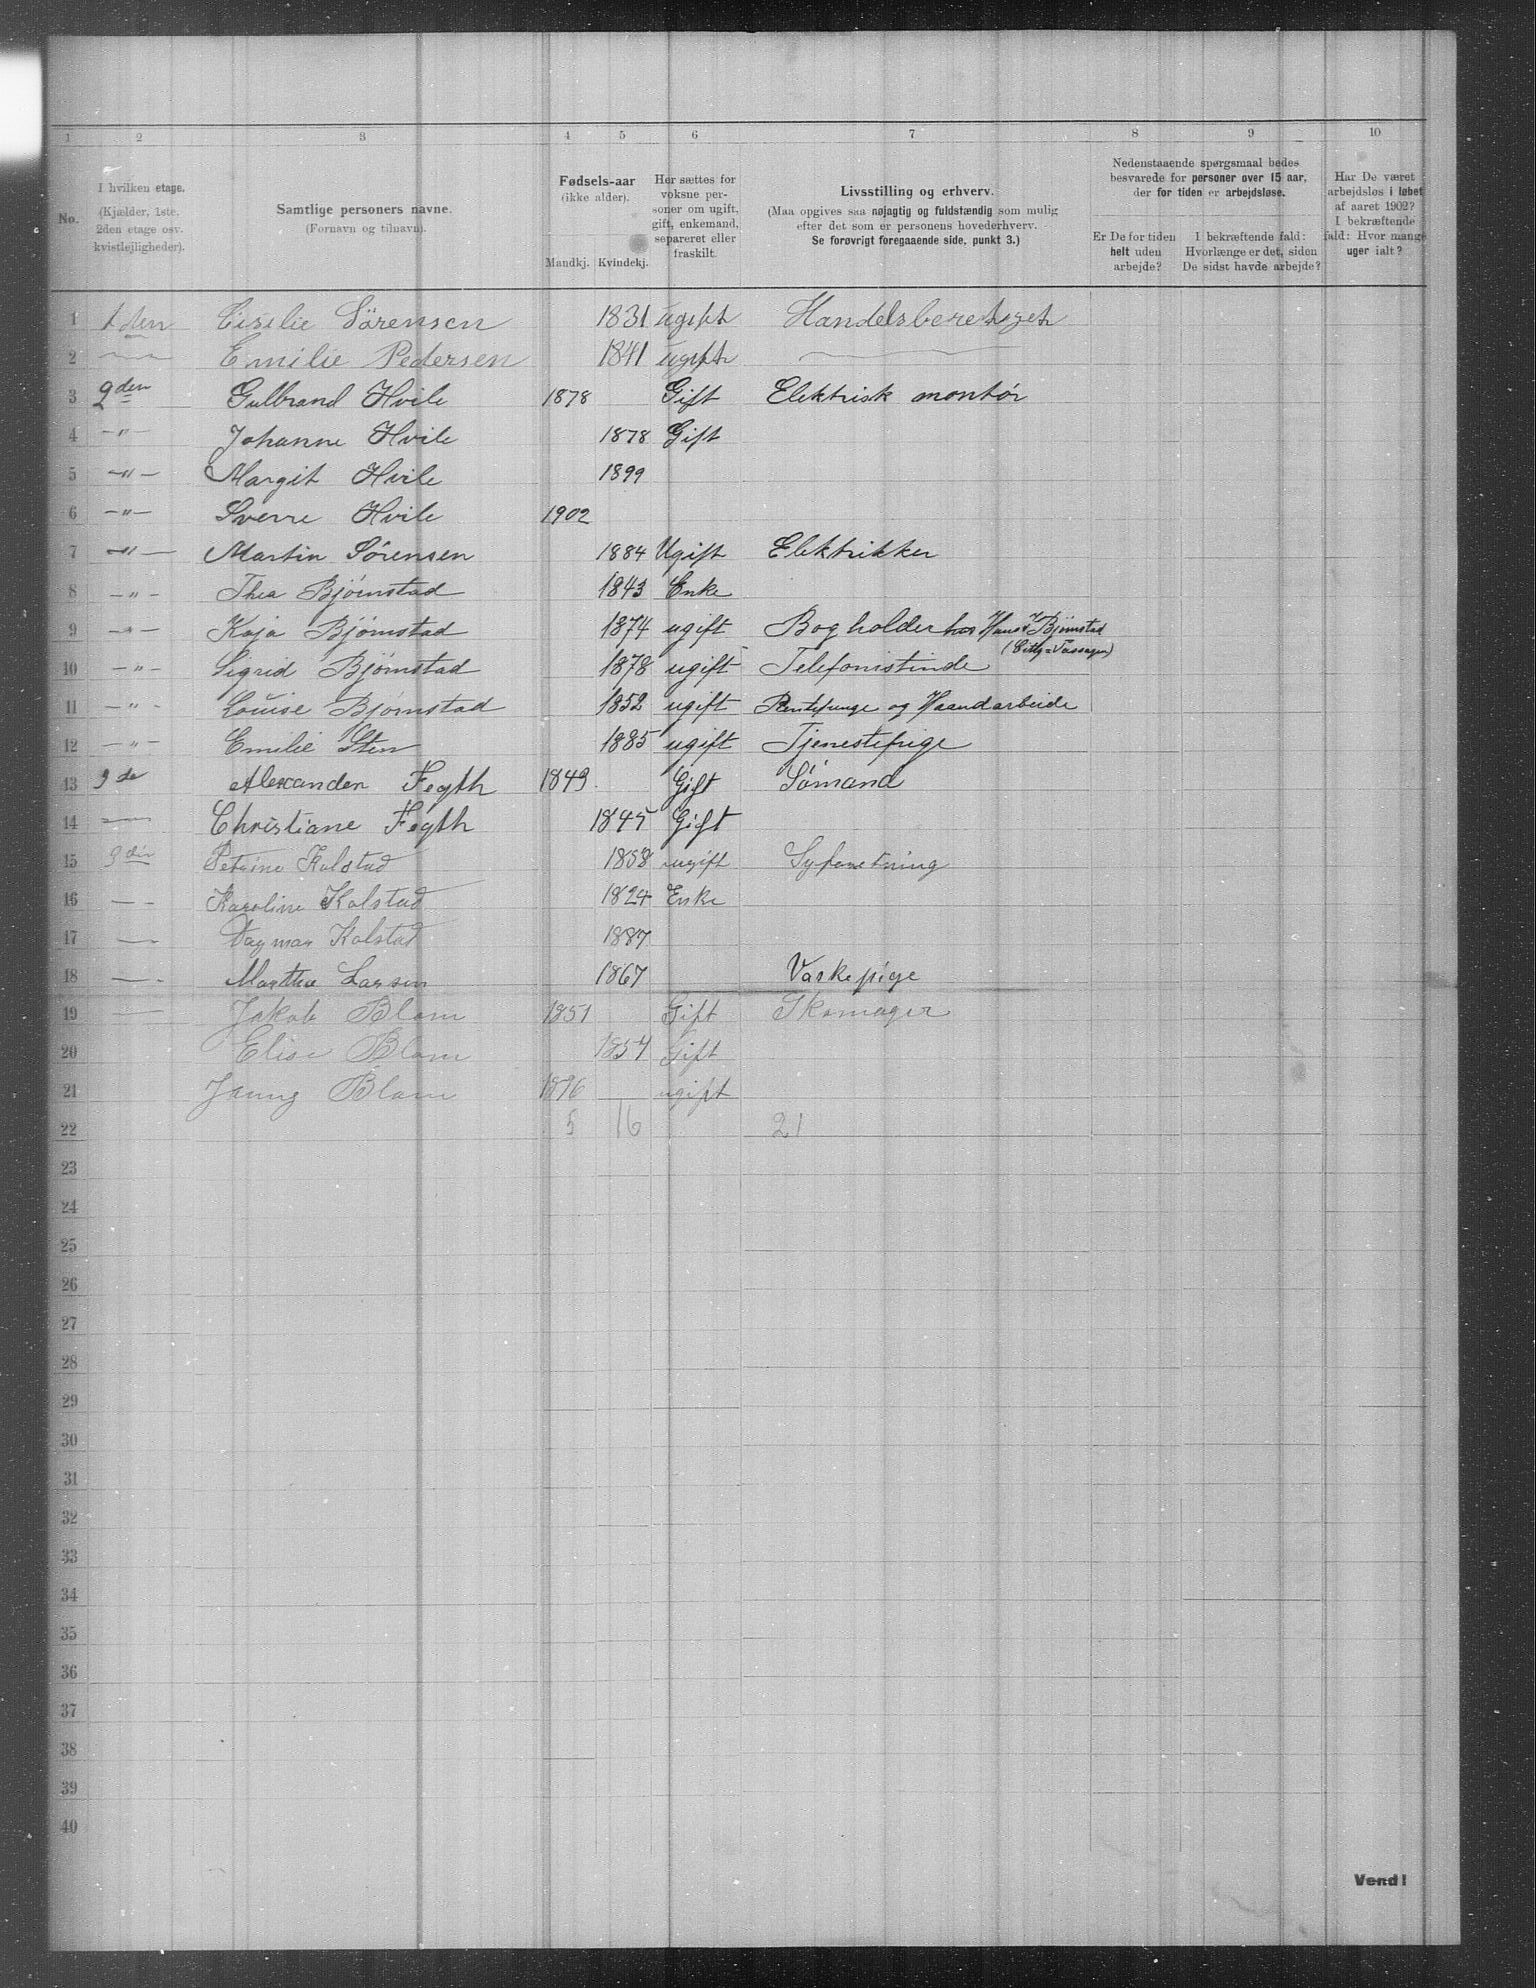 1 2 3 4 5 6 7 8 9 10
No.
I hvilken etage.
(Kjælder, 1ste,
2den etage osv.
kvistlejligheder).
Samtlige personers navne.
(Fornavn og tilnavn).
Fødsels-aar
(ikke alder).
Mandkj. Kvindekj.
Her sættes for
voksne per-
soner om ugift,
gift, enkemand,
separeret eller
fraskilt.
Livsstilling og erhverv.
(Maa opgives saa nøjagtig og fuldstændig som mulig
efter det som er personens hovederhverv.
Se forøvrigt foregaaende side, punkt 3.)
Nedenstaaende spørgsmaal bedes
besvarede for personer over 15 aar,
der for tiden er arbejdsløse.
Er De for tiden
helt uden
arbejde?
I bekræftende fald:
Hvorlænge er det, siden
De sidst havde arbejde?
Har De været
arbejdsløs i løbet
af aaret 1902?
I bekræftende
fald: Hvor mange
uger ialt?
1 1den Cisilie Sörensen 1831 ugift Handelsberetiget
2 — Emilie Pedersen 1841 ugift —
3 2den Gulbrand Hvile 1878 Gift Elektrisk montør
4 —"— Johanne Hvile 1878 Gift
5 —"— Margit Hvile 1899
6 —"— Sverre Hvile 1902
7 —"— Martin Sørensen 1884 Ugift Elektrikker
8 —"— Thea Bjørnstad 1843 Enke
9 —"— Kaja Bjørnstad 1874 ugift Bogholder hos Hans Bjørnstad
(City=Passagen)
10 —"— Sigrid Bjørnstad 1878 ugift Telefonistinde
11 —"— Louise Bjørnstad 1852 ugift Rentepenge og Haandarbeide
12 —"— Emilie Sten 1885 ugift Tjenestepige
13 3de Alexander Fegth 1849 Gift Sømand
14 — Christiane Fegth 1845 Gift
15 3die Petrine Kolstad 1858 ugift Syforretning
16 — Karoline Kolstad 1824 Enke
17 — Dagmar Kolstad 1887
18 — Marthe Larsen 1867 Vaskepige
19 — Jakob Blom 1851 Gift Skomager
20 Elise Blom 1854 Gift
21 Blom 1896 ugift
22 5 16 21
23
24
25
26
27
28
29
30
31
32
33
34
35
36
37
38
39
40
Vend!